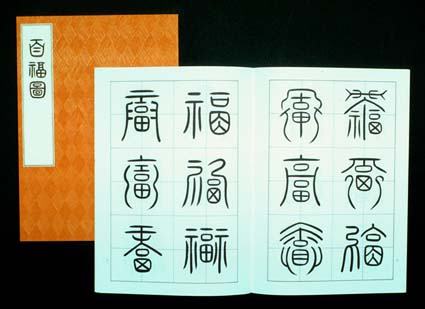 百福圖
福福福
福福福
福福福
福福福